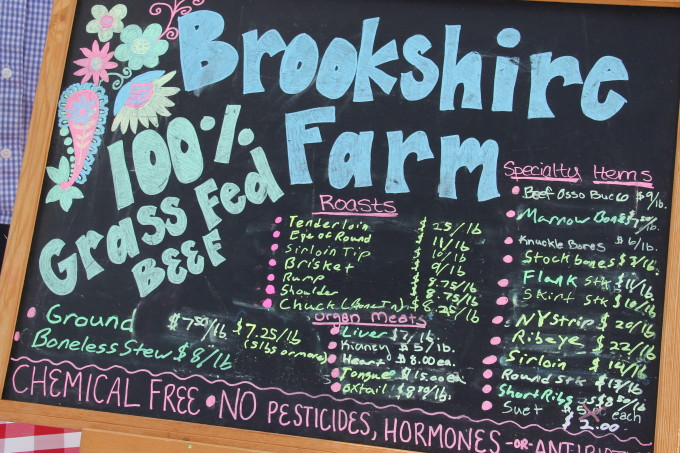 Brookshire
Farm
100%
Grass Fed
BEEF
Roasts
Tenderloin $25/lb
Eye of Round $11/lb
Sirloin Tip $10/lb
Brisket $9/lb
Rump $8.75/lb
Shoulder $8.75/lb
Chuck (Bone In) $8.25/lb
Ground $7.50/lb $7.25/lb
(5 lbs or more)
Boneless Stew $8/lb
Organ Meats
Liver $7/lb.
Kidney $5/lb.
Heart $8.00 ea
Tongue $15.00 ea
Oxtail /lb.
Specialty Items
Beef Osso Buco $9/lb.
Marrow Bones /lb.
Knuckle Bones $6/lb.
Stock bones $3/lb.
Flank Stk /lb
Skirt Stk $10/lb.
NY Strip $20/lb
Ribeye $22/lb
Sirloin $14/lb
Round Stk /lb
Short Ribs $8.50/lb
Suet each
$2.00
CHEMICAL FREE • NO PESTICIDES, HORMONES -OR- ANTIBIOT